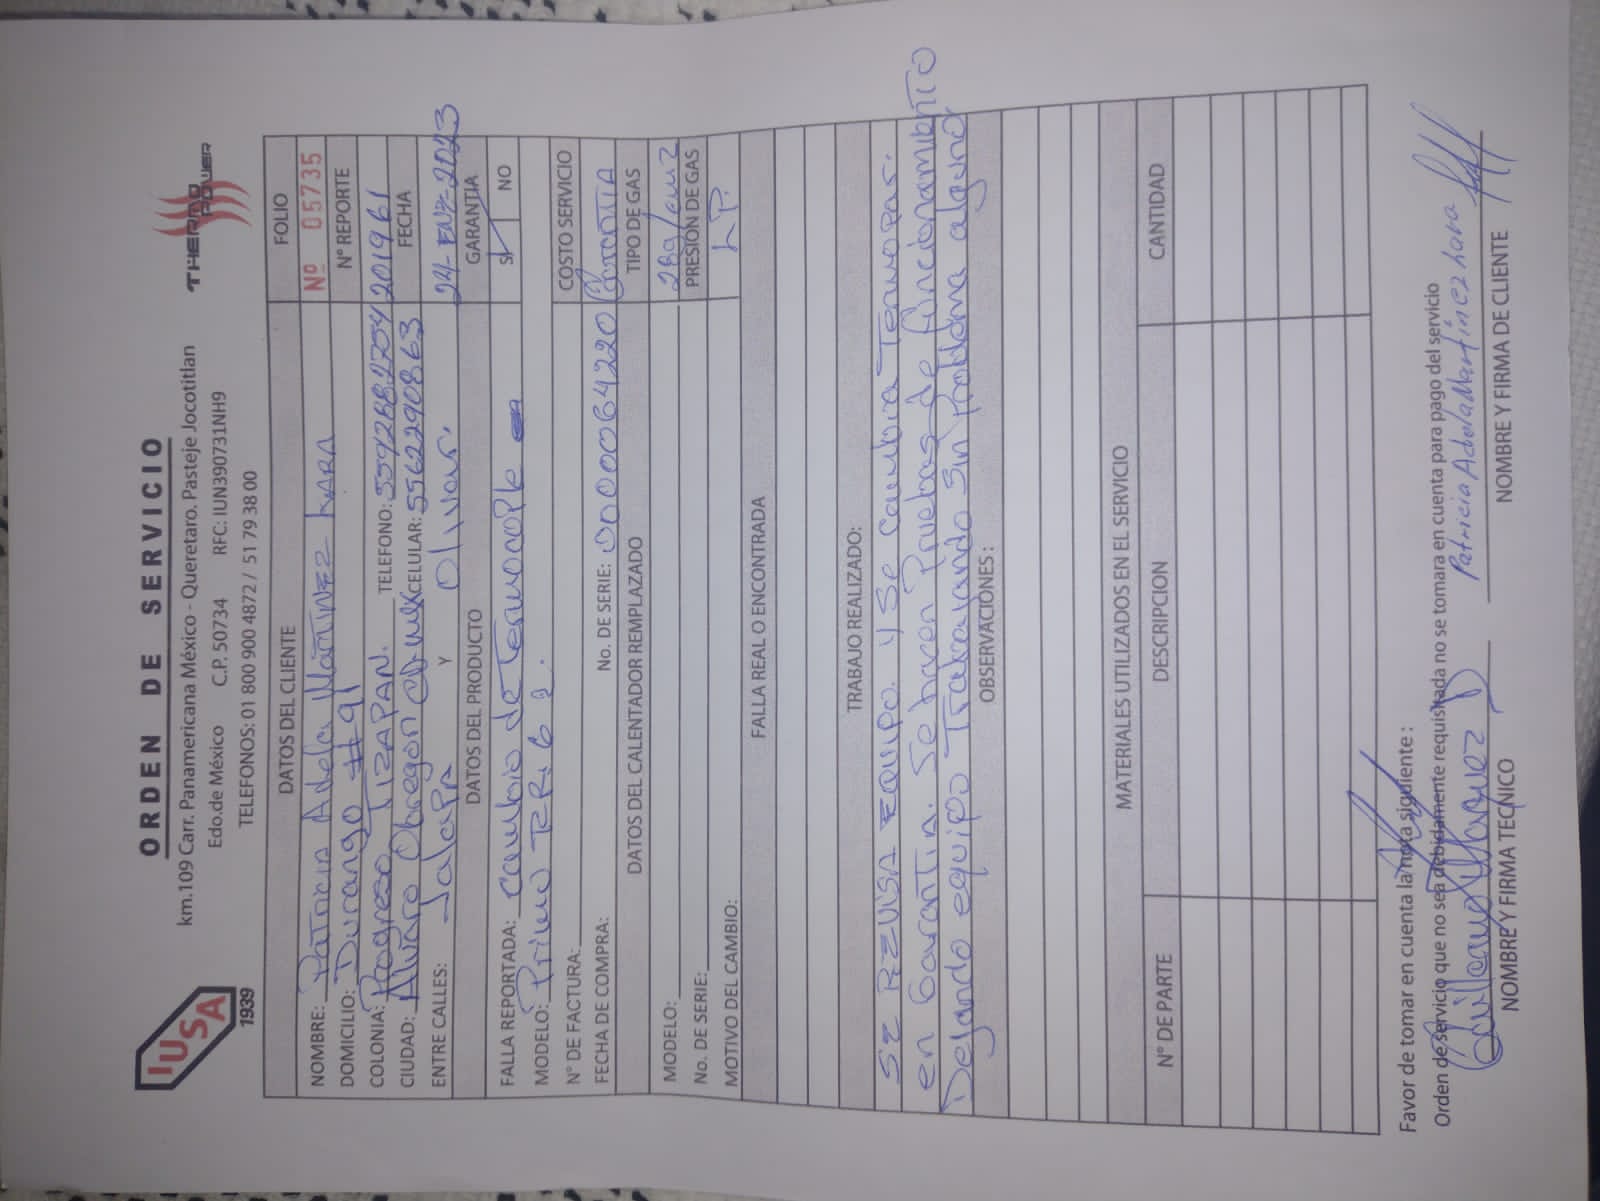 IUSA
1939
ORDEN DE SERVICIO
THERMO POWER
km.109 Carr. Panamericana México - Queretaro. Pasteje Jocotitlan
Edo.de México C.P. 50734 RFC: IUN390731NH9
TELEFONOS: 01 800 900 4872 / 51 79 38 00
DATOS DEL CLIENTE FOLIO
NOMBRE: Patricia Adela MARTINEZ LARA Nº 05735
DOMICILIO: Durango #91 N° REPORTE
COLONIA: Progreso TIZAPAN. TELEFONO: 5542882754 201961
CIUDAD: Alvaro Obregon CDMX CELULAR: 5562290863 FECHA
ENTRE CALLES: JalaPA Y Olivar. 24-ENE-2023
DATOS DEL PRODUCTO GARANTIA
FALLA REPORTADA: Cambio de TermocoPle SI NO
MODELO: Primo RRi 6
N° DE FACTURA: COSTO SERVICIO
FECHA DE COMPRA: No. DE SERIE: 0000064220 GarantiA
DATOS DEL CALENTADOR REMPLAZADO TIPO DE GAS
MODELO: 28g/cm2
No. DE SERIE: PRESION DE GAS
MOTIVO DEL CAMBIO: L.P.
FALLA REAL O ENCONTRADA
TRABAJO REALIZADO:
SE REVISA EQUIPO. y Se Cambia TermoPar.
en Garantia. Se hacen Pruebas de funcionamiento
Dejando equipo Trabajando Sin Problema alguno
OBSERVACIONES :
MATERIALES UTILIZADOS EN EL SERVICIO
N° DE PARTE DESCRIPCION CANTIDAD
Favor de tomar en cuenta la nota siguiente :
Orden de servicio que no sea debidamente requisitada no se tomara en cuenta para pago del servicio
Patricia Adela Martínez Lara
NOMBRE Y FIRMA TECNICO NOMBRE Y FIRMA DE CLIENTE